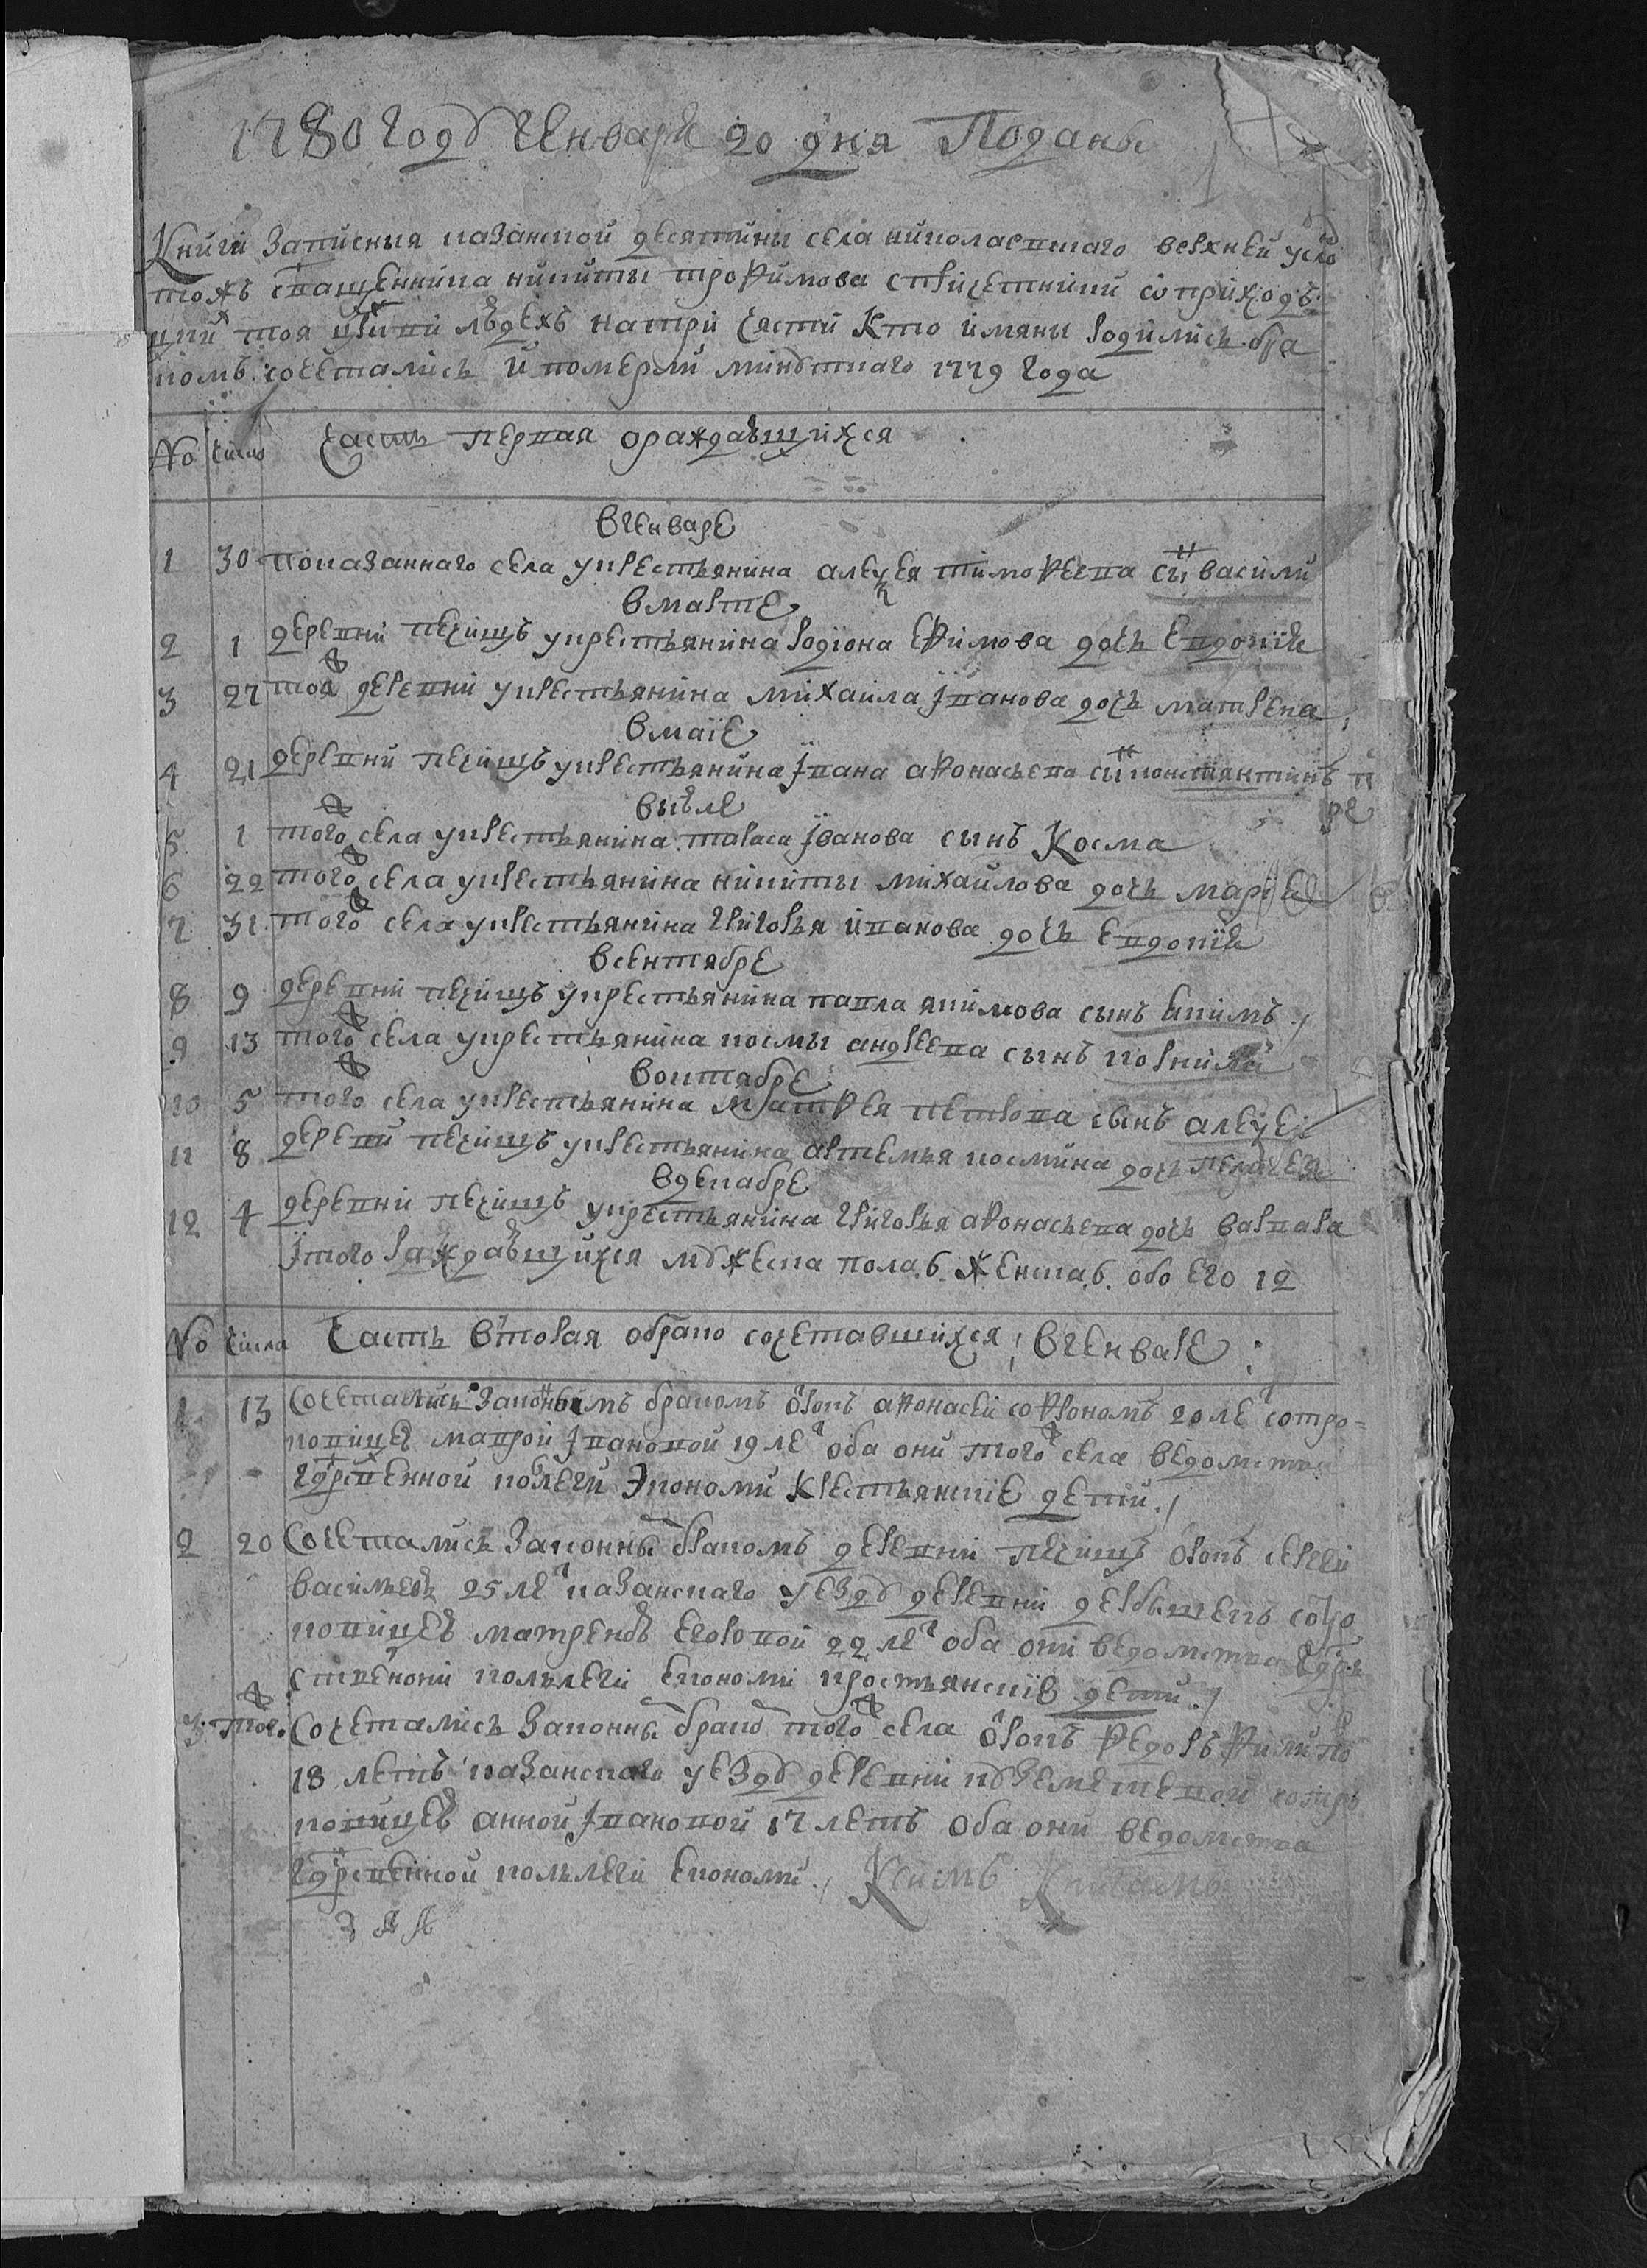 1780 году генваря 20 дня Поданы
Книги записныя казанской десятины села николаевского верхней услон
тожъ священника никиты трофимова с причетники о приход
цкихъ тоя церкви людехъ на три части кто имяны родились бра
комъ сочетались и померли минувшаго 1779 года
No числа Часть первая ораждавшихся
вгенваре
1 30 показаннаго села укрестьянина алексея тимофеева сынъ васили
вмарте
2 1 деревни печищъ укрестьянина родиона ефимова дочь евдокия
3 27 тоя ж деревни укрестьянина михаила iванова дочь матрена
вмаiе
4 21 деревни печищъ укрестьянина iвана афонасьева сынъ константинъ
виюле
5 1 того ж села укрестьянина тараса iванова сынъ Косма
6 22 того ж села укрестьянина никиты михаилова дочь марiя
7 31 того ж села укрестьянина григорья иванова дочь евдокiя
всентябре
8 9 деревни печищъ укрестьянина павла якимова сынъ екимъ
9 13 того ж села укрестьянина космы андреева сынъ корнила
воктябре
10 5 того ж села укрестьянина матфея петрова сынъ алексеи
11 8 деревни печищъ укрестьянина артемья космина дочь пелагея
вдекабре
12 4 деревни печищъ укрестьянина григорья афонасьева дочь варвара
iтого раждавшихся мужеска пола 6 женска 6 обоего 12
No числа Часть вторая обрако сочетавшихся вгенваре
1 13 Сочетались законнымъ бракомъ отрокъ афонасеи софрономъ 20 летъ сотро
ковицею маврои iвановой 19 летъ оба они того ж села ведомства
гдрственной колегии экономи крестьянские дети
2 20 Сочетались законны бракомъ деревни печищъ отрокъ сергеи
васильевъ 25 летъ казанскаго уезду деревни дербышекъ сотро
ковицею матреною егоровой 22 летъ оба они ведомства гдрь
ственной кольлеги економи крестьянские дети
3 того ж Сочетались законны браком того ж села отрокъ федоръ филипо
18 летъ казанскаго уезду деревни куземетевой котръ
ковицею анной iвановой 17 летъ оба они ведомства
гдрственной кольлеги економи